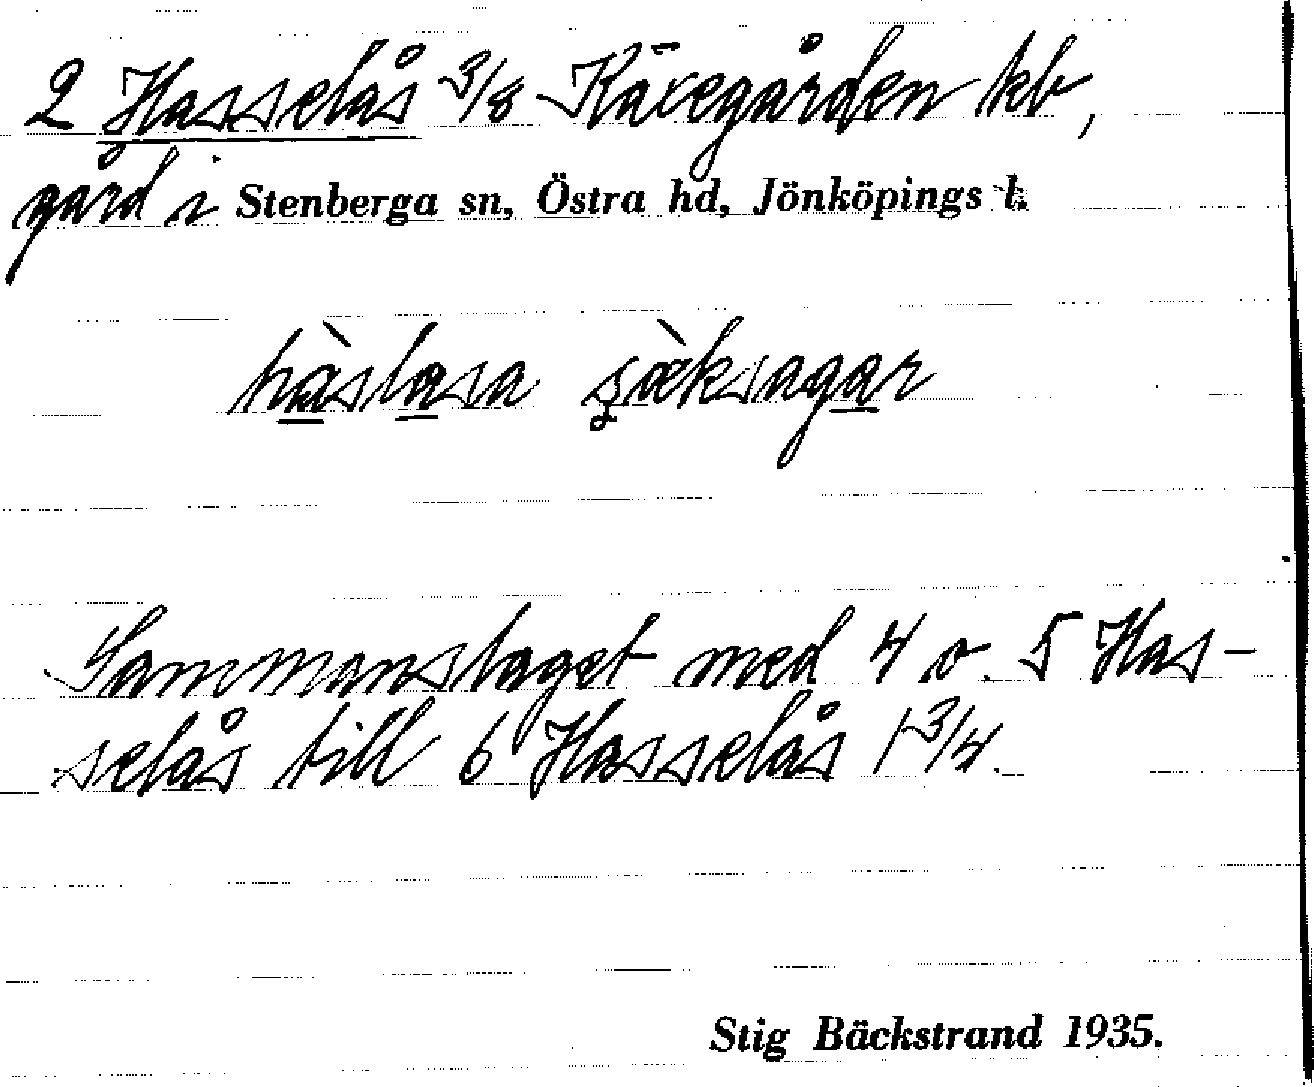 2 Hasselås 3/8 Kävegården kb,
gård i Stenberga sn, Östra hd, Jönköpings l.
hàslasa sæ̀ksagar
Sammanslaget med 4 o. 5 Has-
selås till 6 Hasselås 1 3/4.
Stig Bäckstrand 1935.